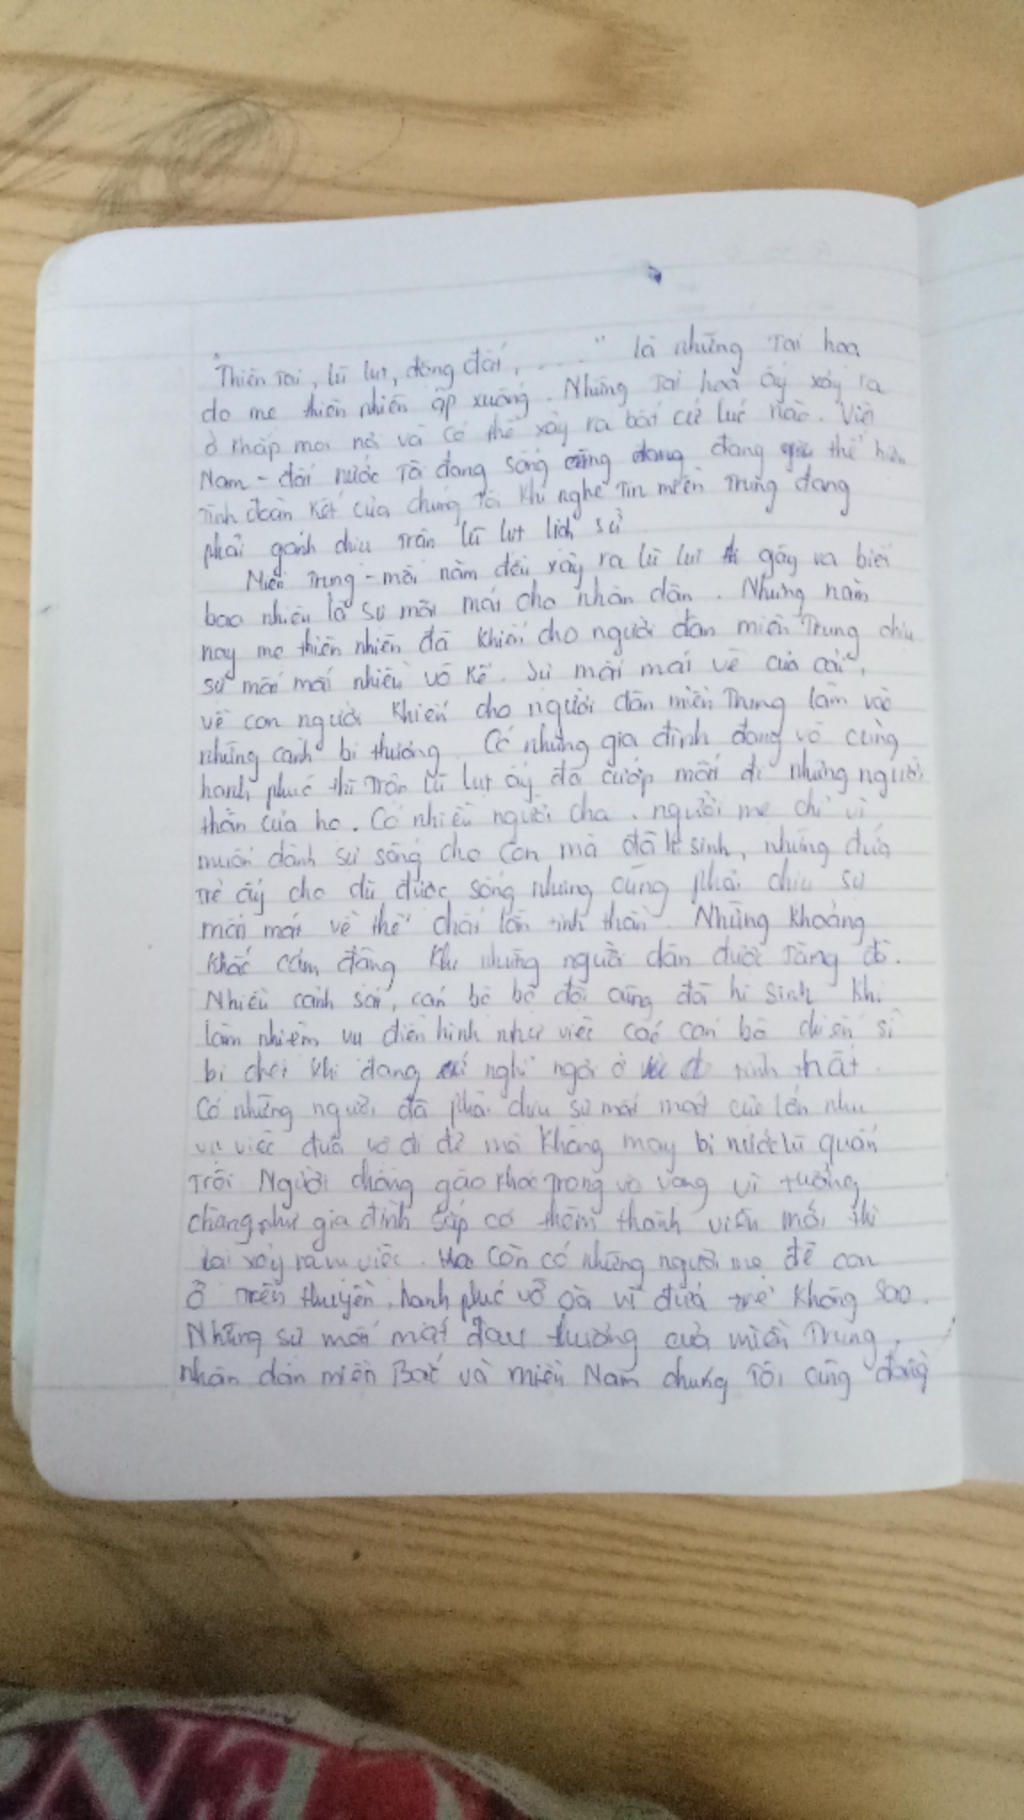 "Thiên tai, lũ lụt, động đất, ....." là những tai hoạ
do mẹ thiên nhiên ập xuống. Những tai hoạ ấy xảy ra
ở khắp mọi nơi và có thể xảy ra bất cứ lúc nào. Việt
Nam - đất nước ta đang sống cũng đang đang thể hiện
tình đoàn kết của chúng tôi khi nghe tin miền Trung đang
phải gánh chịu trận lũ lụt lịch sử
Miền Trung - mỗi năm đều xảy ra lũ lụt gây ra biết
bao nhiêu là sự mất mát cho nhân dân. Nhưng năm
nay mẹ thiên nhiên đã khiến cho người dân miền Trung chịu
sự mất mát nhiều vô kể. Sự mất mát về của cải,
về con người khiến cho người dân miền Trung lâm vào
những cảnh bi thương. Có những gia đình đang vô cùng
hạnh phúc thì trận lũ lụt ấy đã cướp mất đi những người
thân của họ. Có nhiều người cha, người mẹ chỉ vì
muốn dành sự sống cho con mà đã hi sinh, những đứa
trẻ ấy cho dù được sống nhưng cũng phải chịu sự
mất mát về thể chất lẫn tinh thần. Những khoảng
khắc cảm động khi những người dân được tặng đồ.
Nhiều cảnh sát, cán bộ bộ đội cũng đã hi sinh khi
làm nhiệm vụ điển hình như việc các cán bộ chiến sĩ
bị chết khi đang nghỉ ngơi ở
Có những người đã phải chịu sự mất mát cực lớn như
vụ việc đưa vợ đi đẻ mà không may bị nước lũ quấn
trôi Người chồng gào khóc trong vô vọng vì tưởng
chừng như gia đình sắp có thêm thành viên mới thì
lại xảy ra vụ việc. Còn có những người mẹ đẻ con
ở trên thuyền, hạnh phúc vỡ oà vì đứa trẻ không sao.
Những sự mất mát đau thương của miền Trung,
nhân dân miền Bắc và miền Nam chúng tôi cũng đồng